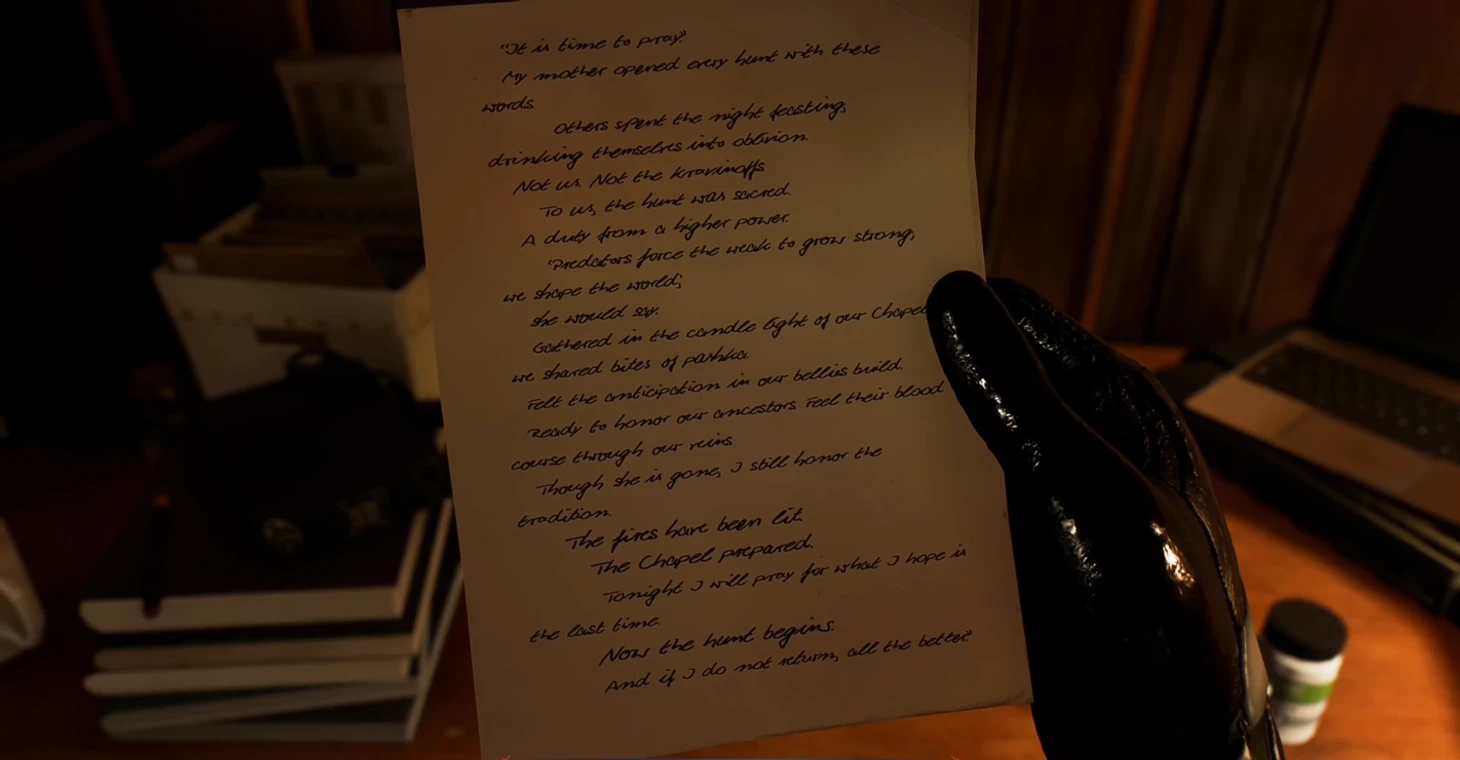 "It is time to pray."
My mother opened every hunt with these
words.
Others spent the night feasting,
drinking themselves into oblivion.
Not us. Not the Kravinoffs.
To us, the hunt was sacred.
A duty from a higher power.
"Predators force the weak to grow strong,
we shape the world,"
she would say.
Gathered in the candle light of our Chapel
we shared bites of pashka.
Felt the anticipation in our bellies build.
Ready to honor our ancestors. Feel their blood
course through our veins.
Though she is gone, I still honor the
tradition.
The fires have been lit.
The Chapel prepared.
Tonight I will pray for what I hope is
the last time.
Now the hunt begins.
And if I do not return, all the better."